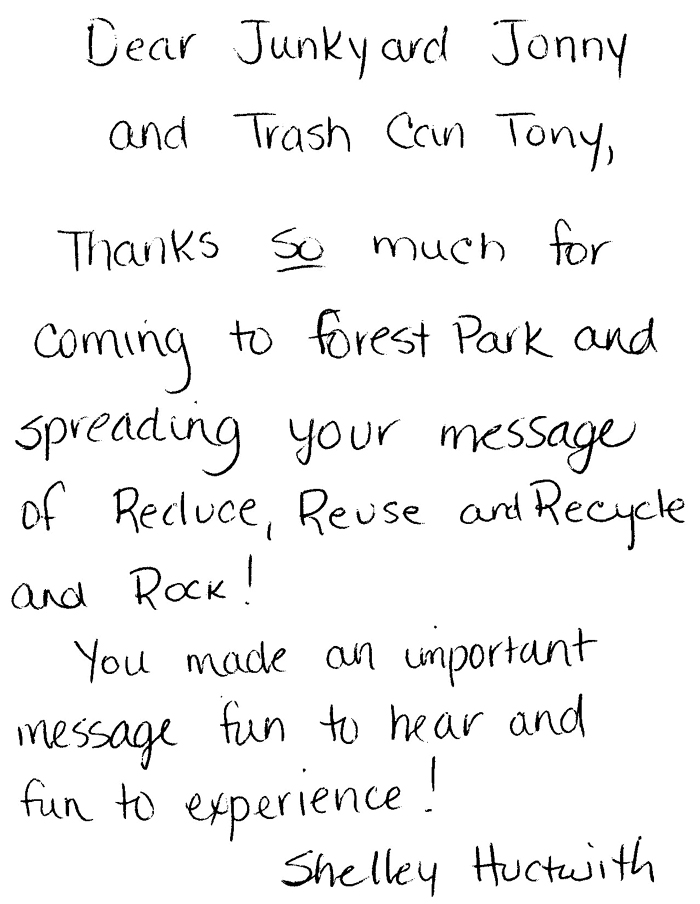 Dear Junkyard Jonny
and Trash Can Tony,
Thanks so much for
coming to forest Park and
spreading your message
of Reduce, Reuse and Recycle
and Rock!
You made an important
message fun to hear and
fun to experience!
Shelley Huctwith